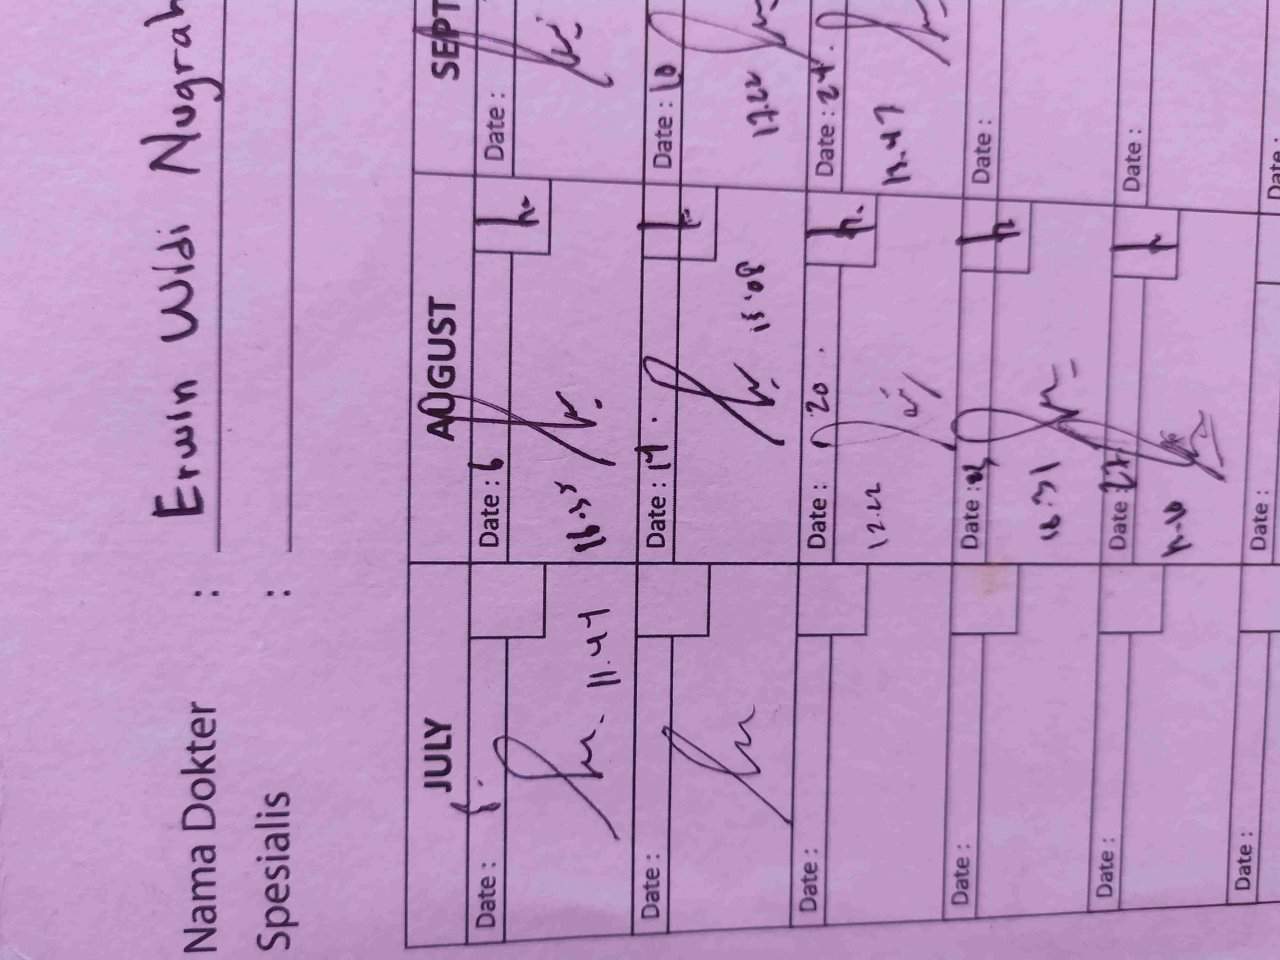 Nama Dokter : Erwin Wldi Nugrah
Spesialis :
JULY AUGUST SEPT
Date : Date : 6 Date :
11.47 16.35
Date : Date : 14 Date : 10
15.08 17.22
Date : Date : 20 Date : 24
12.22 12.47
Date : Date : Date :
16.31
Date : Date : 27 Date :
Date : Date : Date :